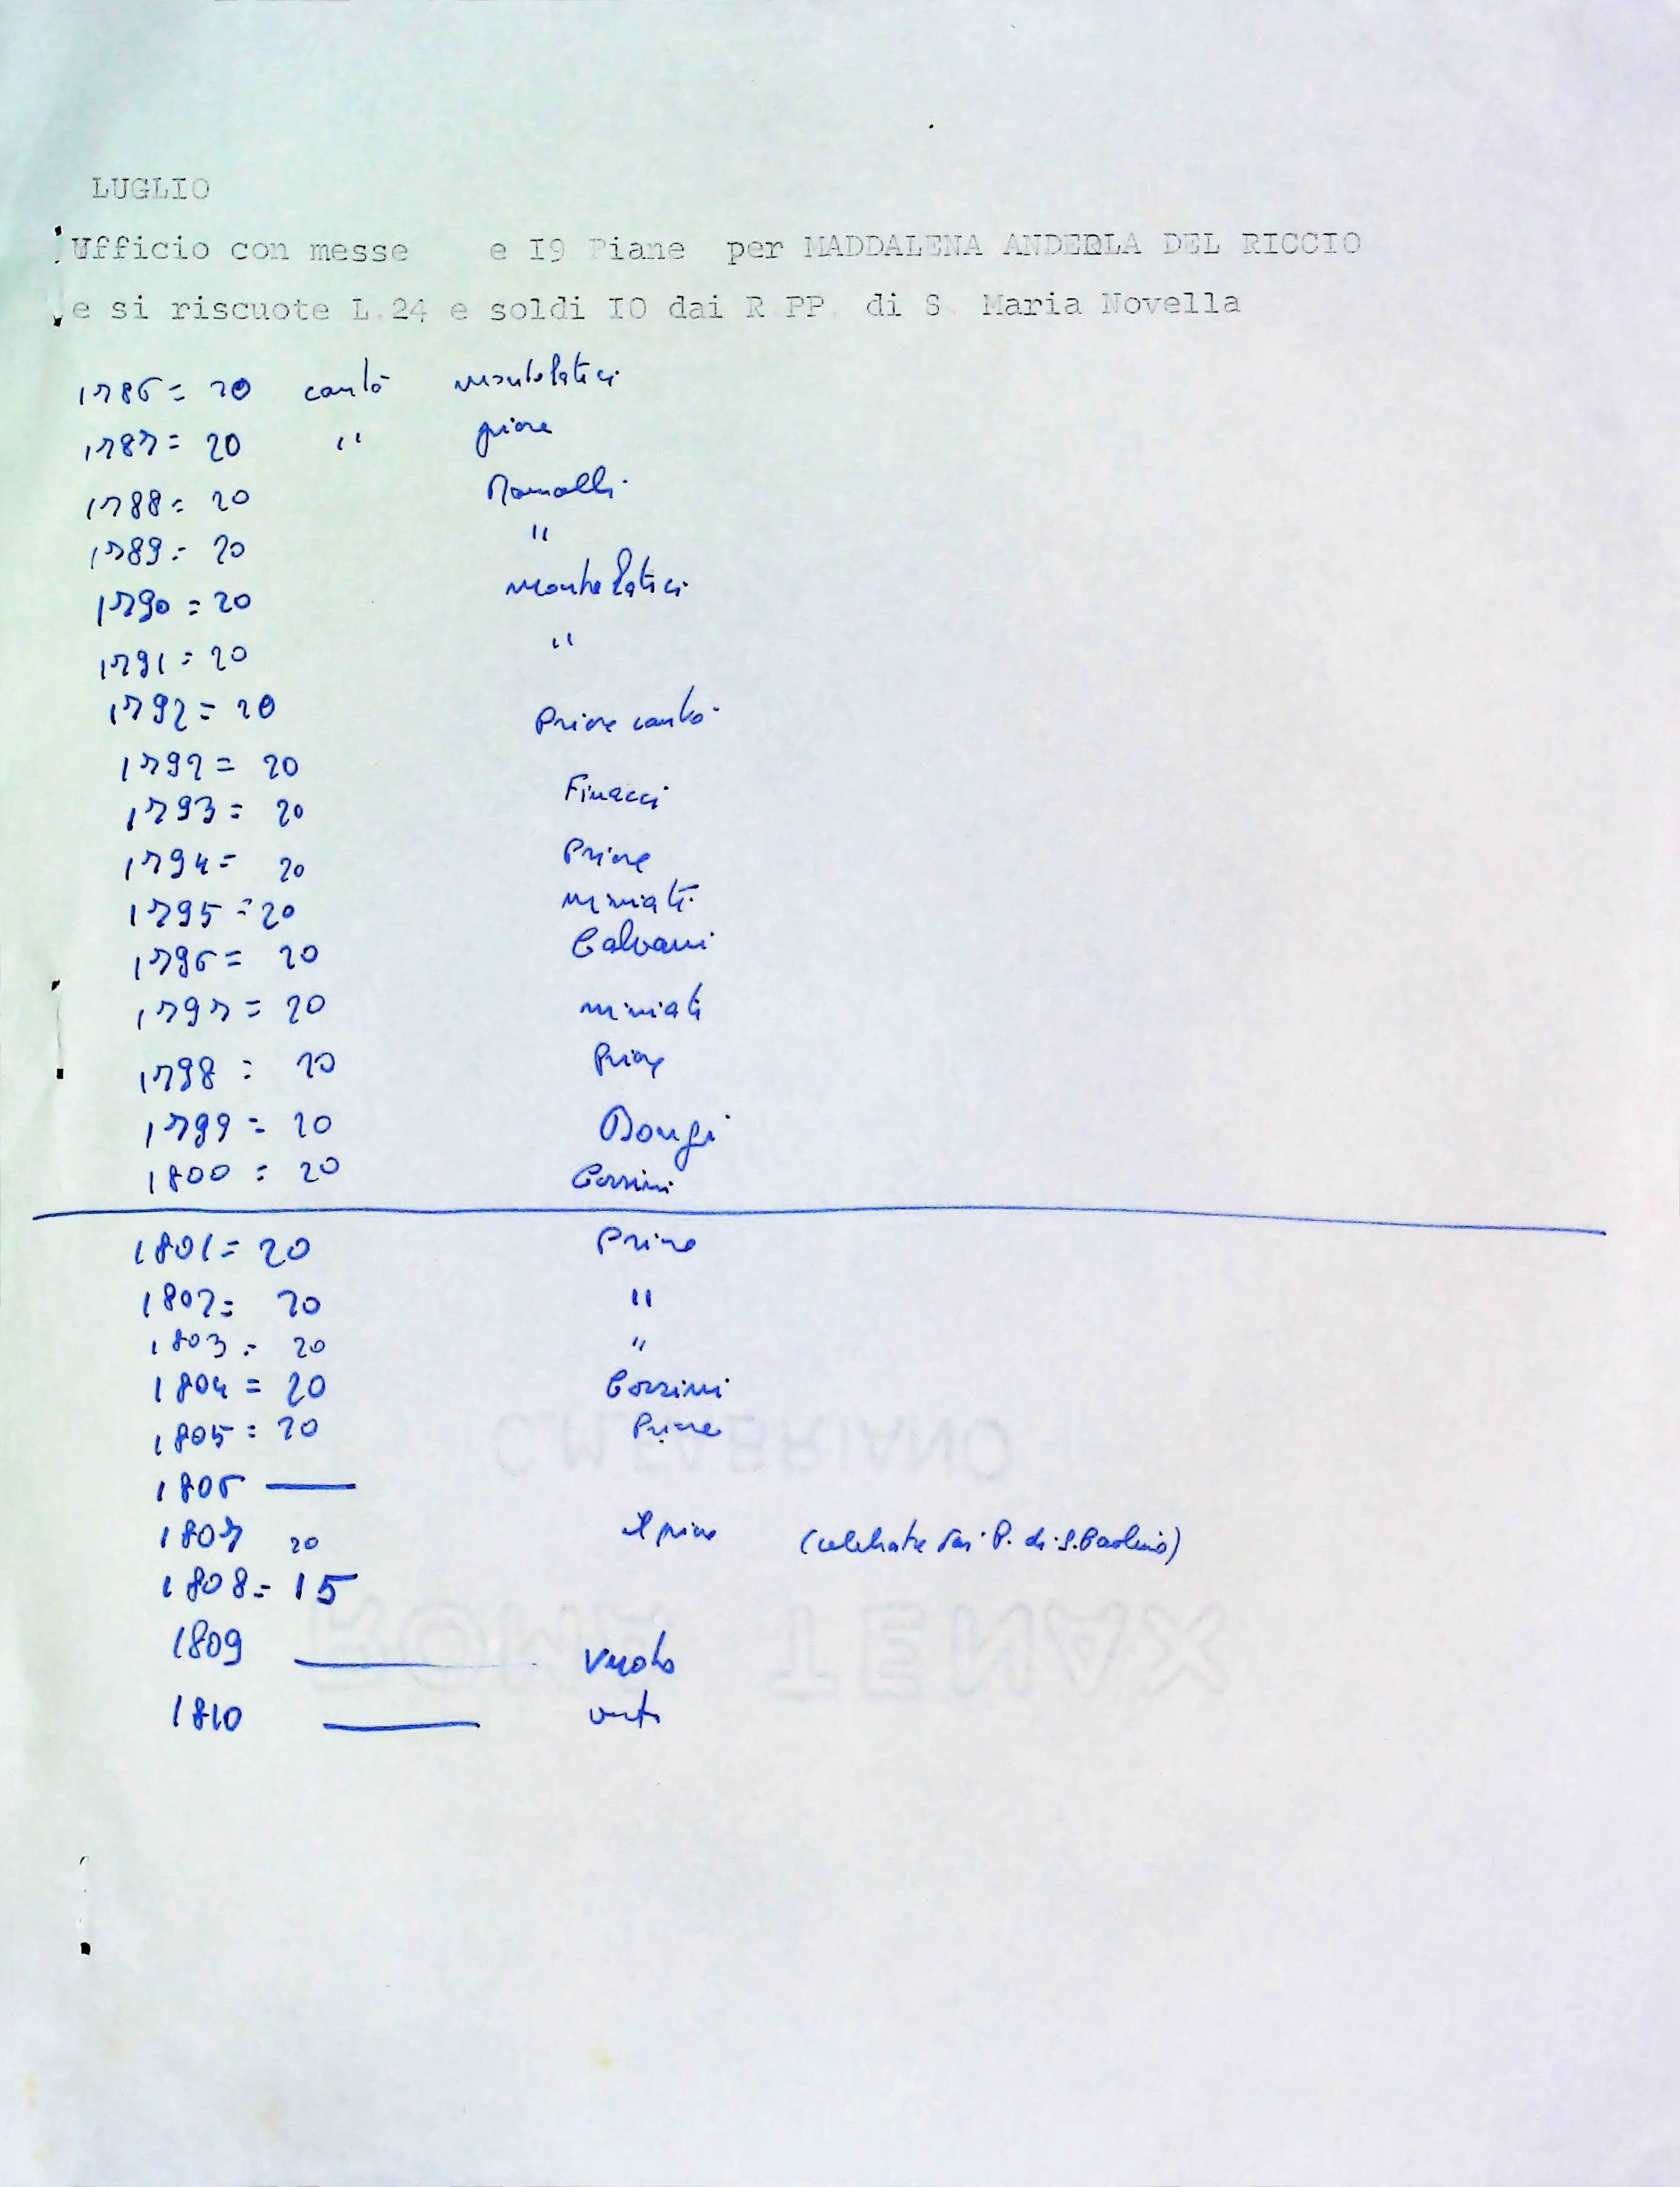 LUGLIO
Ufficio con messe e I9 Piane per MADDALENA ANDERLA DEL RICCIO
e si riscuote L.24 e soldi IO dai R PP. di S. Maria Novella
1786 = 20 cantò Montelatici
1787 = 20 " priore
1788 = 20
1789 = 20 "
1790 = 20 Montelatici
1791 = 20 "
1792 = 20 Priore cantò
1792 = 20
1793 = 20 Finacci
1794 = 20 Priore
1795 = 20 Miniati
1796 = 20 Calvani
1797 = 20 Miniati
1798 = 20 Priore
1799 = 20 Dongi
1800 = 20 Corsini
1801 = 20 Priore
1802 = 20 "
1803 = 20 "
1804 = 20 Corsini
1805 = 20 Priore
C.M.FABRIANO
1806 —
1807 20 il priore (celebrate dai P. di S. Paolino)
1808 = 15
ROMA TENAX
1809 — Vuoto
1810 —